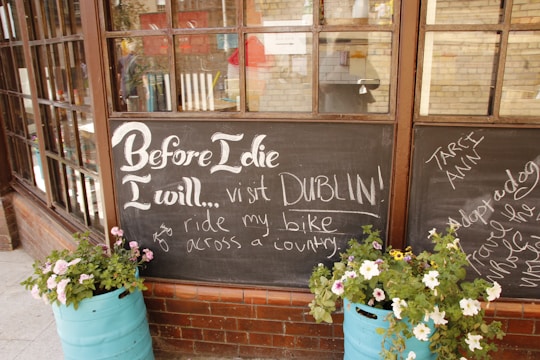 Before I die
I will... visit DUBLIN!
ride my bike
across a country.
TARFI
ANN
Adopt a dog
Travel the
whole
world